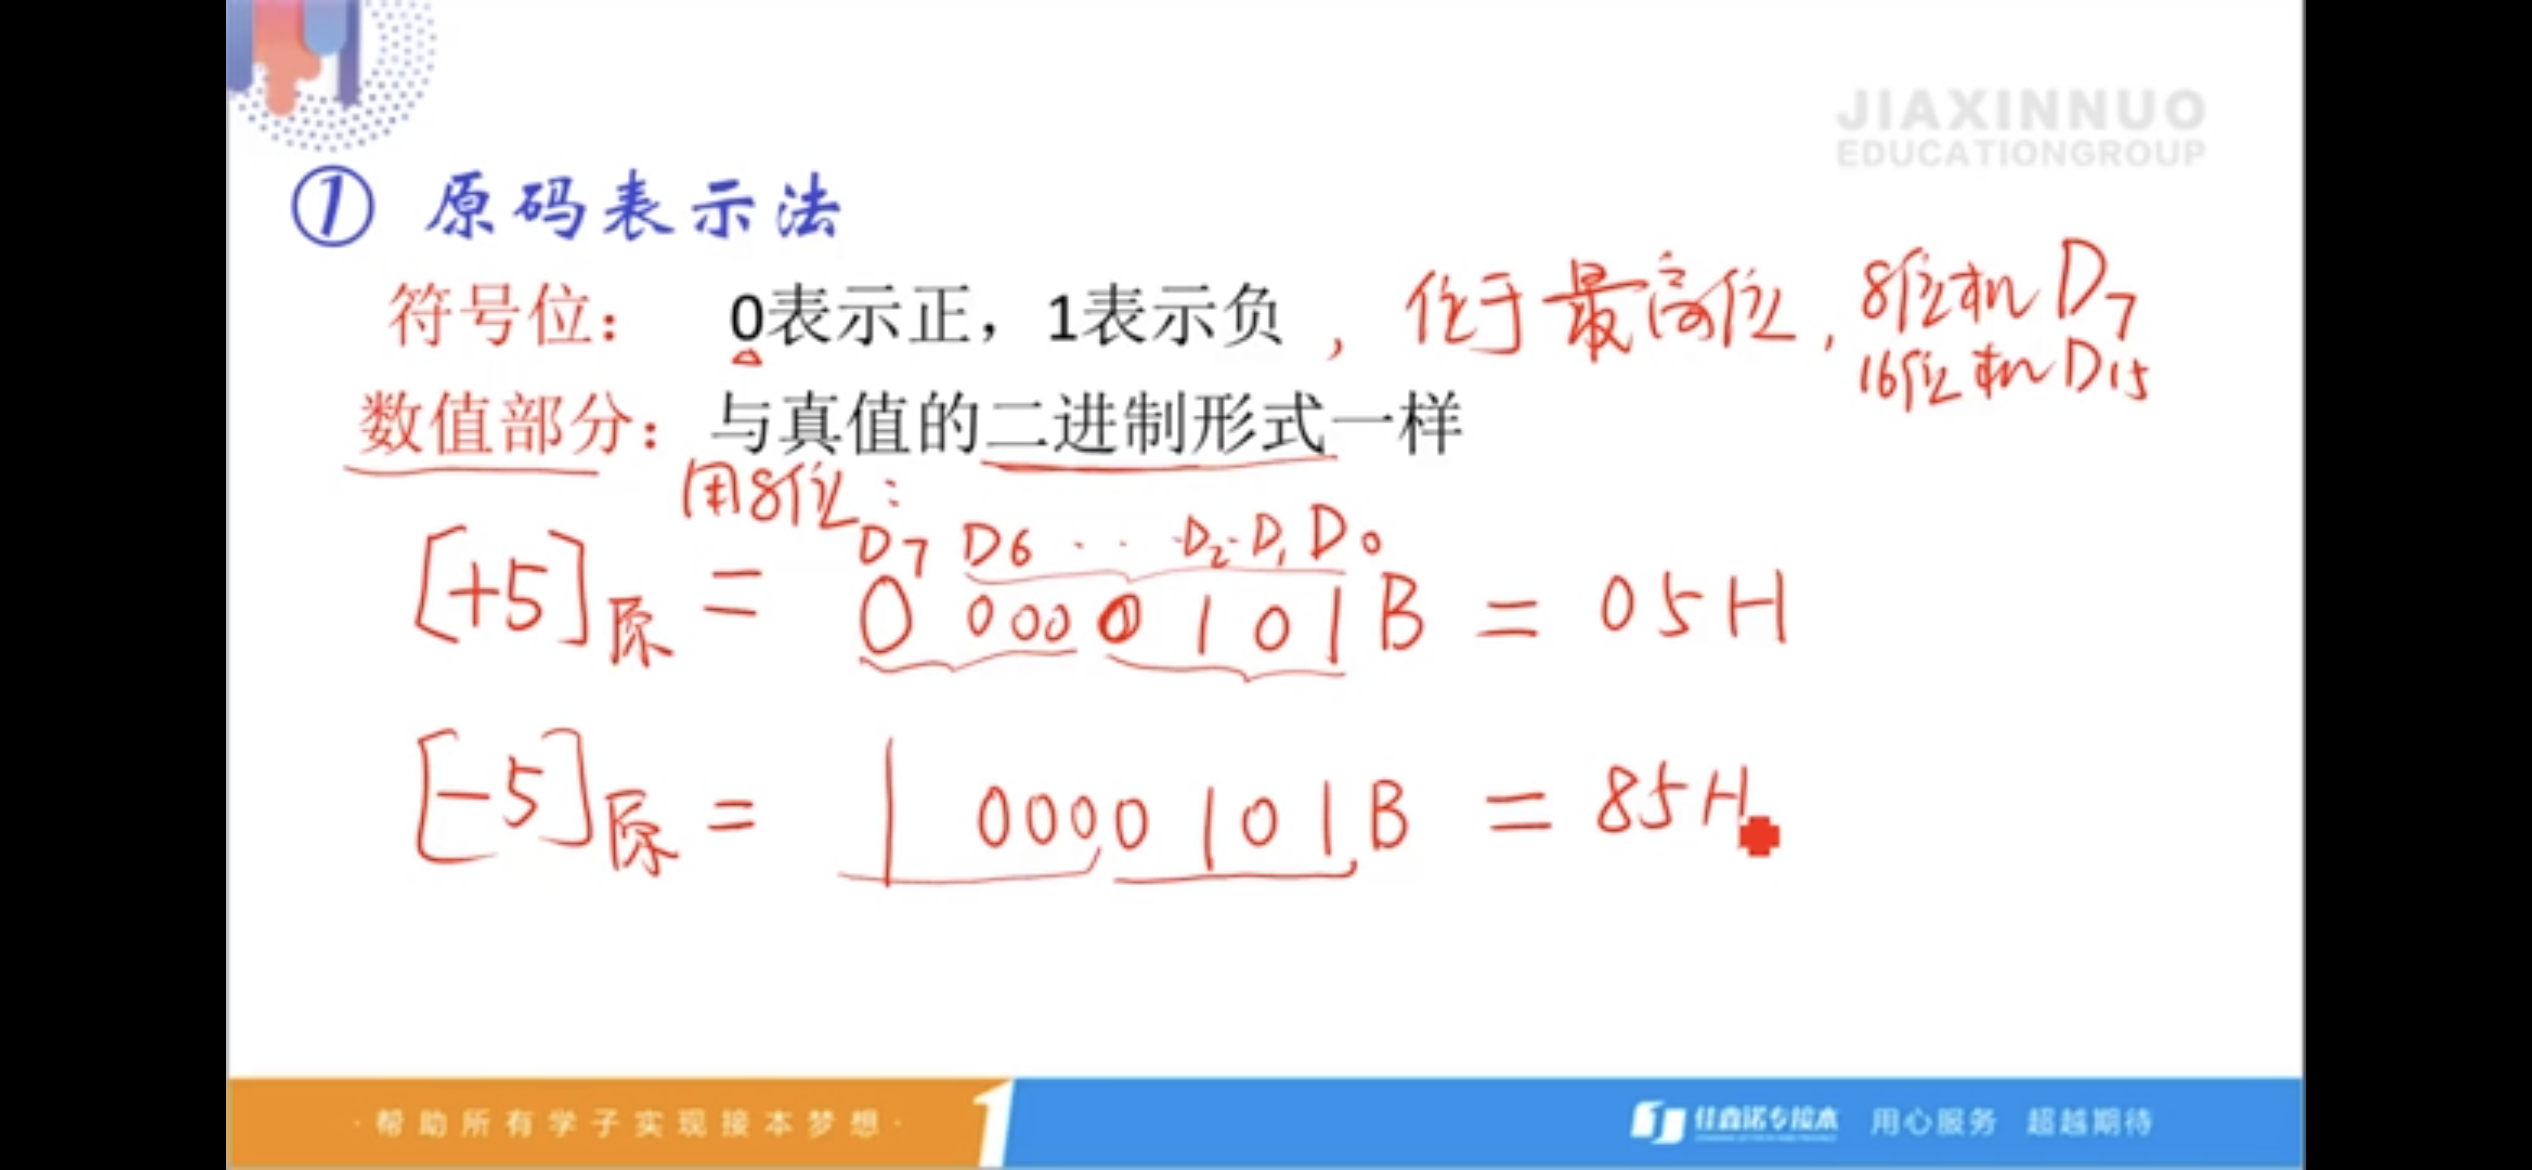 JIAXINNUO
EDUCATIONGROUP
① 原码表示法
符号位： 0表示正，1表示负，位于最高位，8位机D7
16位机D15
数值部分： 与真值的二进制形式一样
用8位：
D7 D6 ·· ·D2·D1 D0
[+5]原 = 0 0000101B = 05H
[-5]原 = 1 0000101B = 85H
·帮助所有学子实现接本梦想· 1 佳鑫诺专接本 用心服务 超越期待